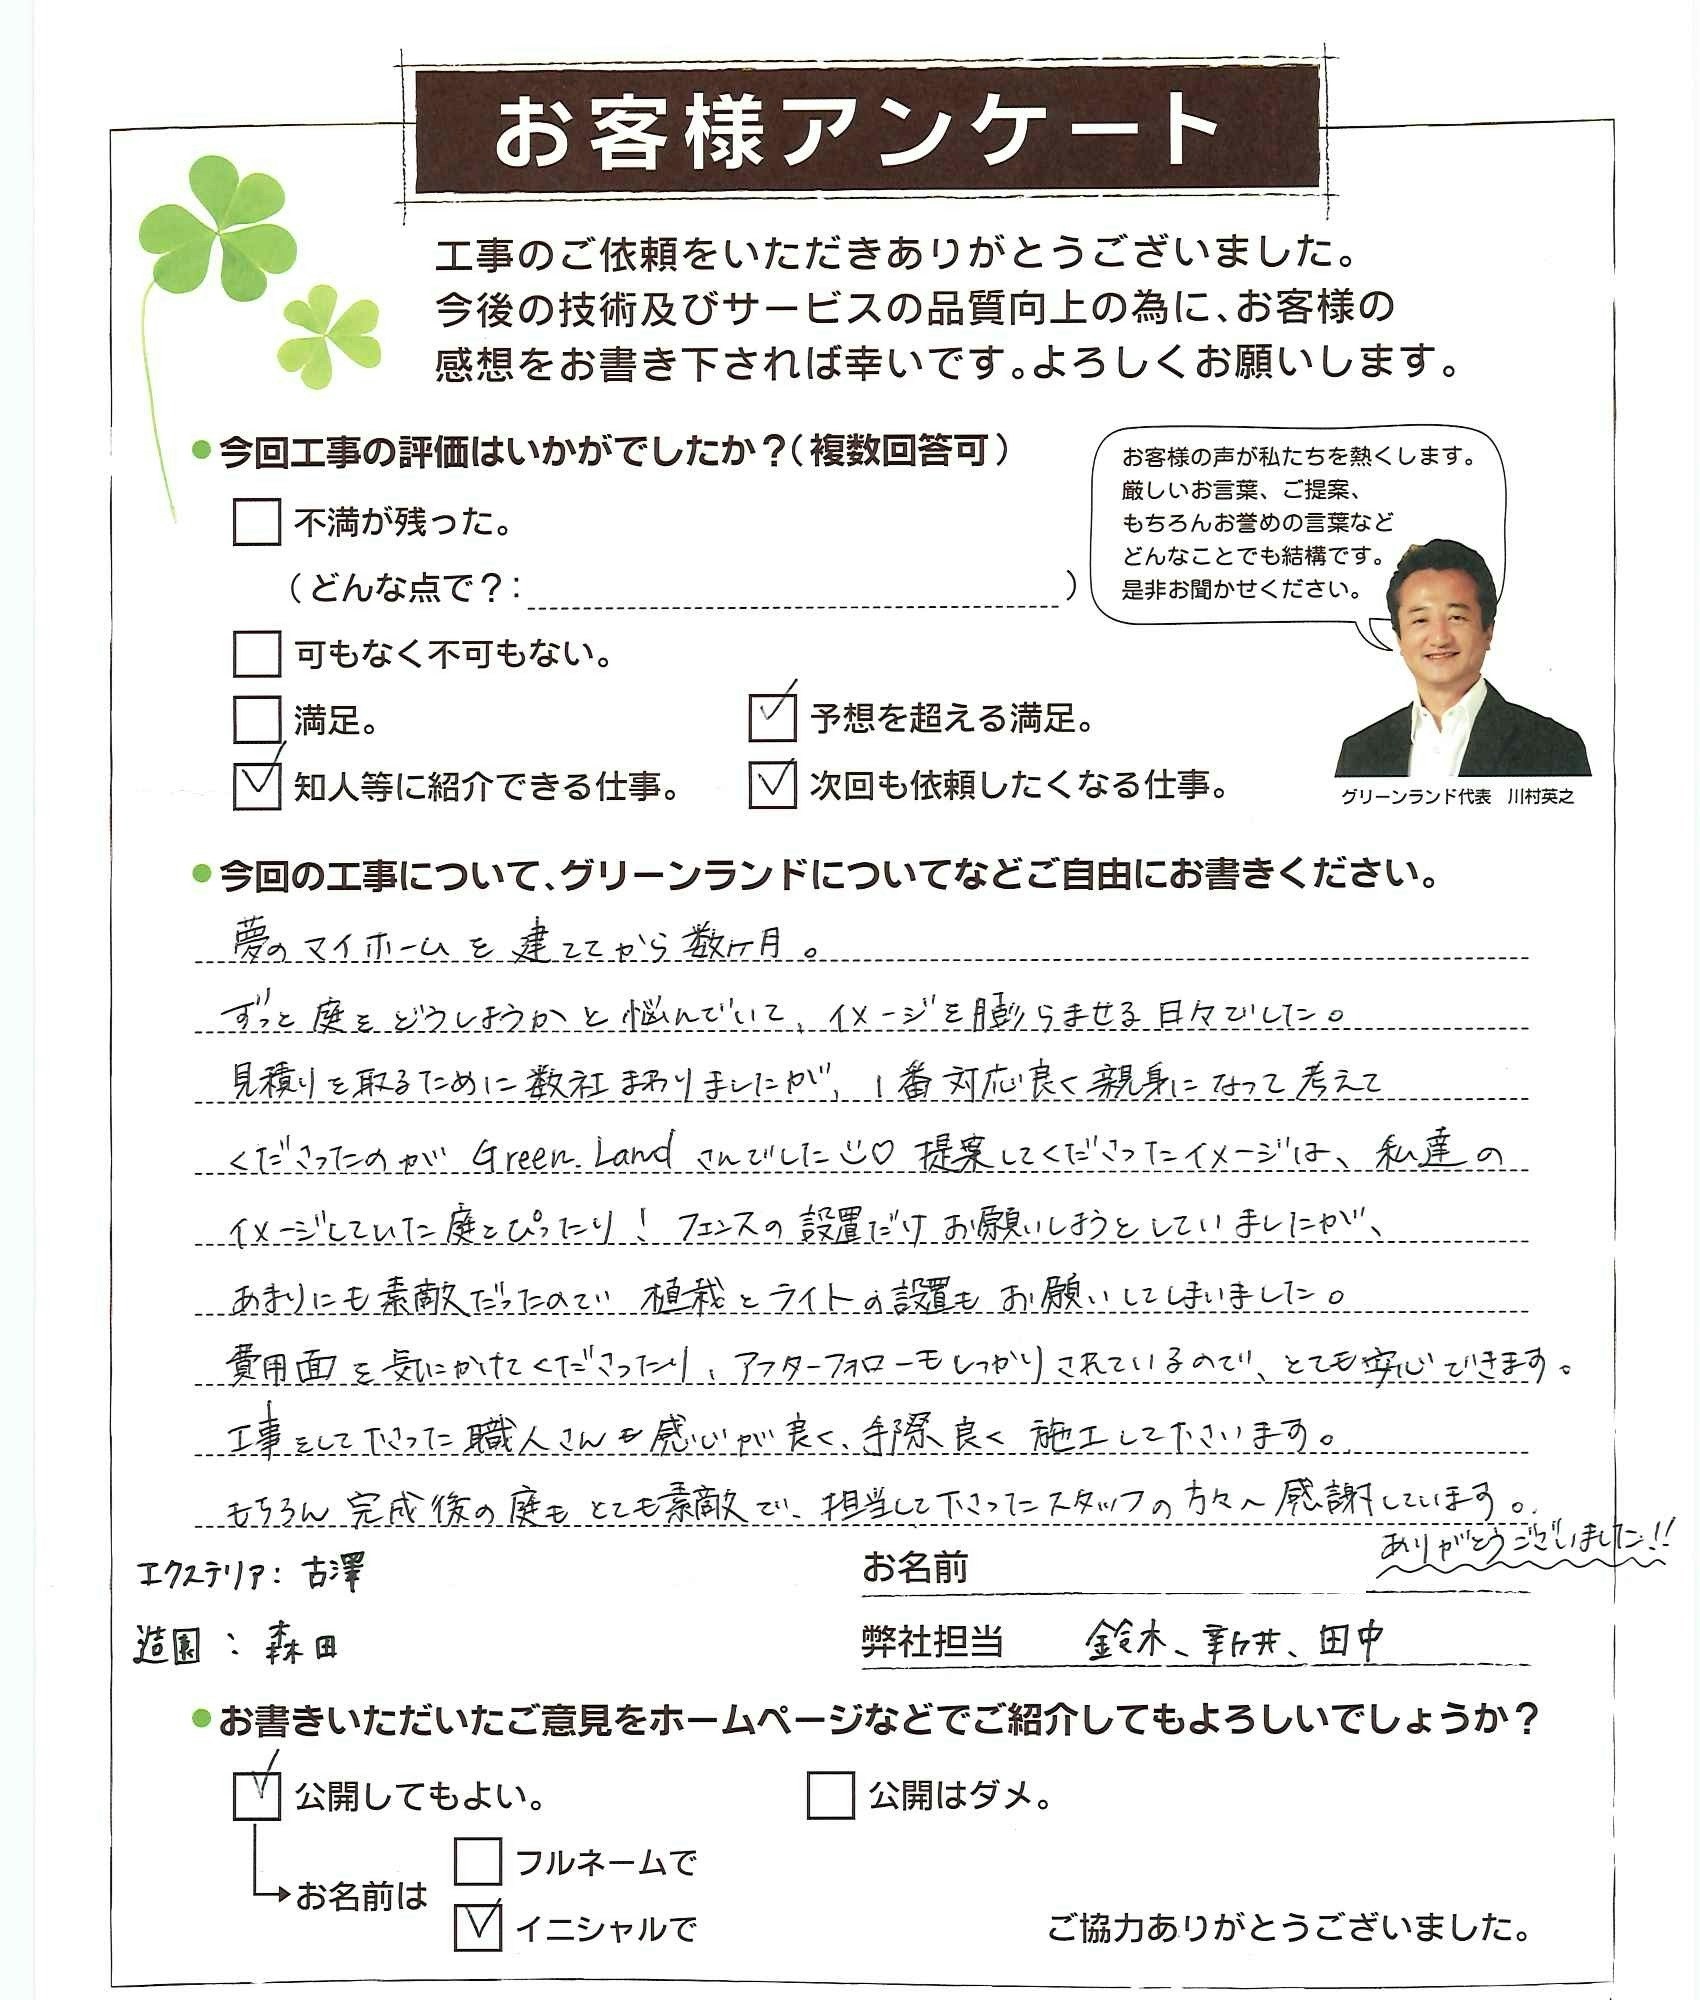 お客様アンケート
工事のご依頼をいただきありがとうございました。
今後の技術及びサービスの品質向上の為に、お客様の
感想をお書き下されば幸いです。よろしくお願いします。
●今回工事の評価はいかがでしたか？（複数回答可）
お客様の声が私たちを熱くします。
厳しいお言葉、ご提案、
もちろんお誉めの言葉など
どんなことでも結構です。
是非お聞かせください。
グリーンランド代表　川村英之
不満が残った。
（どんな点で？：　　　）
可もなく不可もない。
満足。　予想を超える満足。
知人等に紹介できる仕事。　次回も依頼したくなる仕事。
●今回の工事について、グリーンランドについてなどご自由にお書きください。
夢のマイホームを建ててから数ヶ月。
ずっと庭をどうしようかと悩んでいて、イメージを膨らませる日々でした。
見積りを取るために数社まわりましたが、1番対応良く親身になって考えて
くださったのが Green.Land さんでした♡ 提案してくださったイメージは、私達の
イメージしていた庭とぴったり！フェンスの設置だけお願いしようとしていましたが、
あまりにも素敵だったので 植栽とライトの設置もお願いしてしまいました。
費用面を気にかけてくださったり、アフターフォローもしっかりされているので、とても安心できます。
工事をして下さった職人さんも感じが良く、手際良く施工して下さいます。
もちろん完成後の庭もとても素敵で、担当して下さったスタッフの方々へ感謝しています。
ありがとうございました!!
エクステリア：古澤
お名前
造園：森田
弊社担当　鈴木、新井、田中
●お書きいただいたご意見をホームページなどでご紹介してもよろしいでしょうか？
公開してもよい。　公開はダメ。
お名前は
フルネームで
イニシャルで
ご協力ありがとうございました。